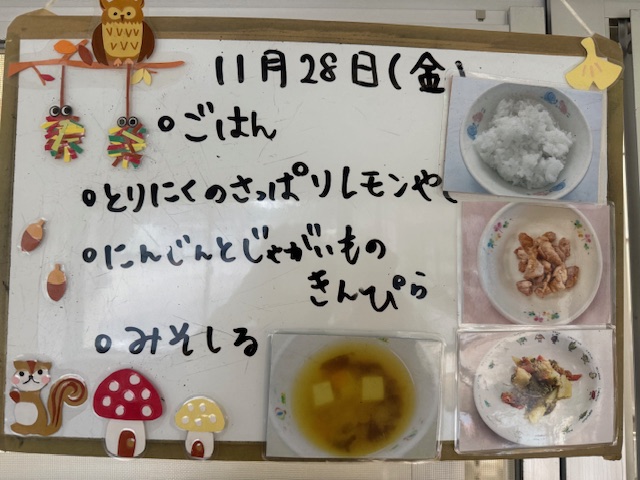 11月28日(金)
ごはん
とりにくのさっぱりレモンや
にんじんとじゃがいもの
きんぴら
みそしる